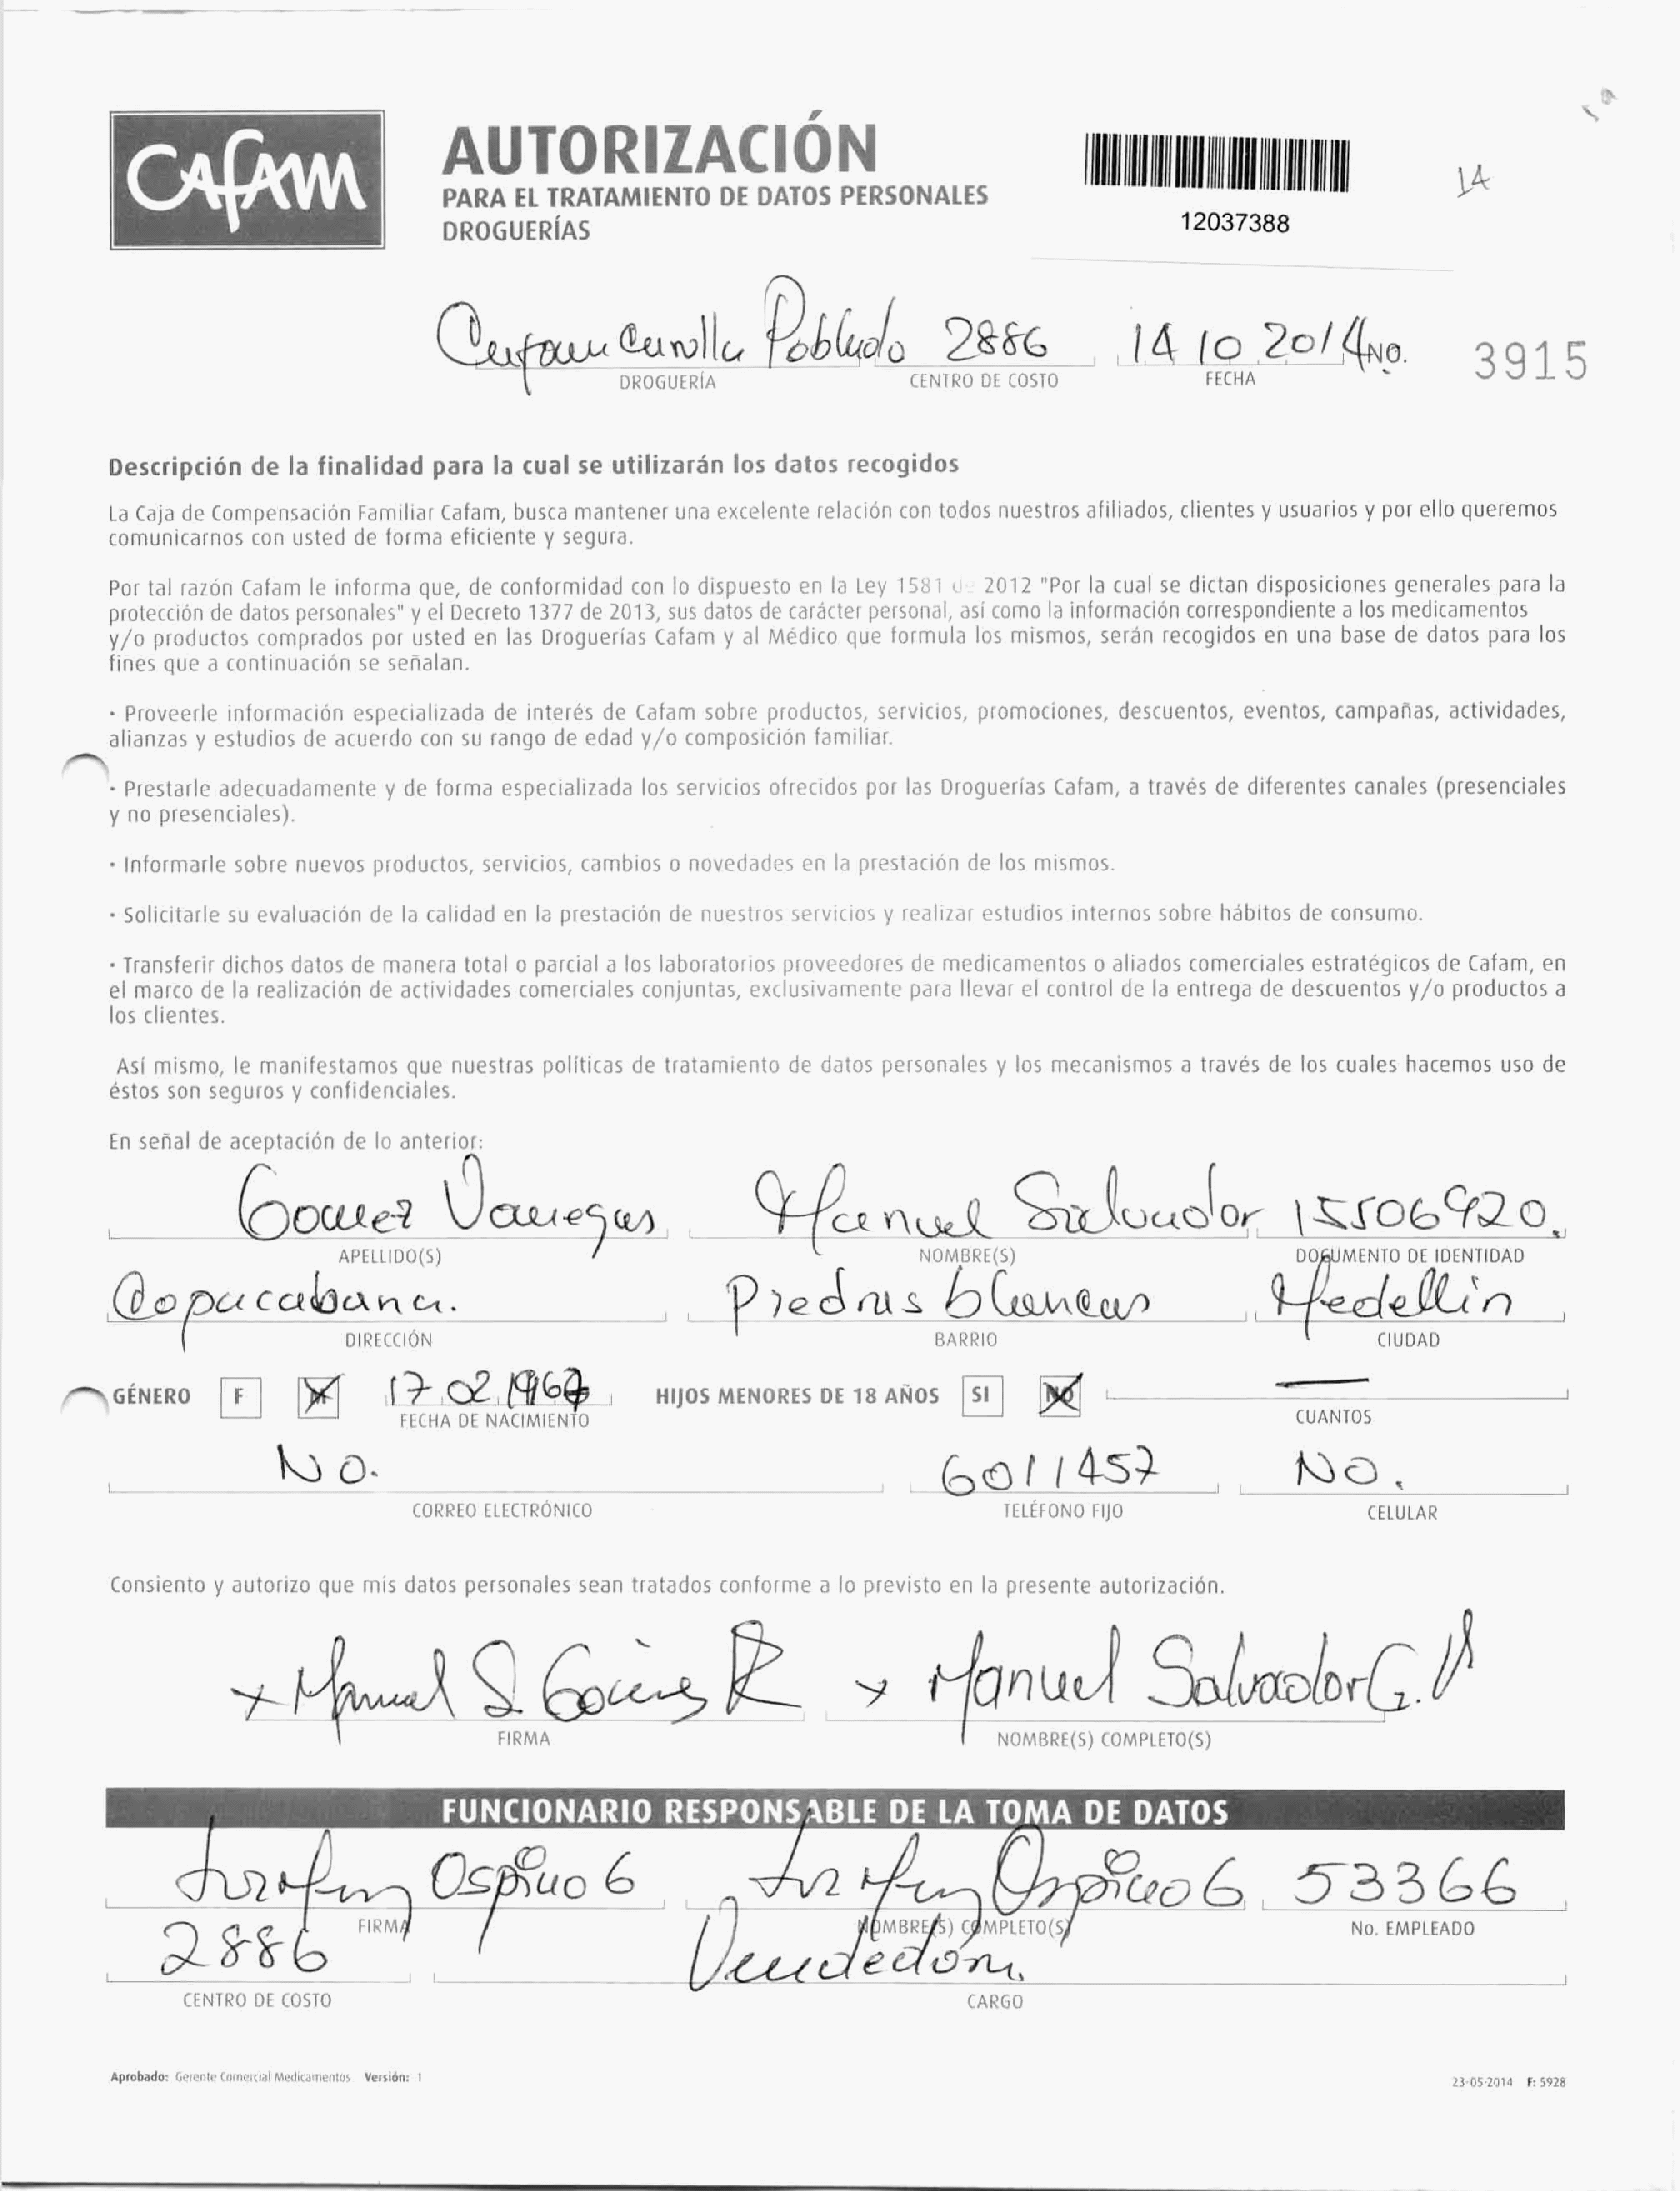 CAFAM
AUTORIZACIÓN
PARA EL TRATAMIENTO DE DATOS PERSONALES
DROGUERÍAS
12037388
14
Poblado 2886 14 10 2014 NO. 3915
DROGUERÍA CENTRO DE COSTO FECHA
Descripción de la finalidad para la cual se utilizarán los datos recogidos
La Caja de Compensación Familiar Cafam, busca mantener una excelente relación con todos nuestros afiliados, clientes y usuarios y por ello queremos
comunicarnos con usted de forma eficiente y segura.
Por tal razón Cafam le informa que, de conformidad con lo dispuesto en la Ley 1581 de 2012 "Por la cual se dictan disposiciones generales para la
protección de datos personales" y el Decreto 1377 de 2013, sus datos de carácter personal, así como la información correspondiente a los medicamentos
y/o productos comprados por usted en las Droguerías Cafam y al Médico que formula los mismos, serán recogidos en una base de datos para los
fines que a continuación se señalan.
· Proveerle información especializada de interés de Cafam sobre productos, servicios, promociones, descuentos, eventos, campañas, actividades,
alianzas y estudios de acuerdo con su rango de edad y/o composición familiar.
· Prestarle adecuadamente y de forma especializada los servicios ofrecidos por las Droguerías Cafam, a través de diferentes canales (presenciales
y no presenciales).
· Informarle sobre nuevos productos, servicios, cambios o novedades en la prestación de los mismos.
· Solicitarle su evaluación de la calidad en la prestación de nuestros servicios y realizar estudios internos sobre hábitos de consumo.
· Transferir dichos datos de manera total o parcial a los laboratorios proveedores de medicamentos o aliados comerciales estratégicos de Cafam, en
el marco de la realización de actividades comerciales conjuntas, exclusivamente para llevar el control de la entrega de descuentos y/o productos a
los clientes.
Así mismo, le manifestamos que nuestras políticas de tratamiento de datos personales y los mecanismos a través de los cuales hacemos uso de
éstos son seguros y confidenciales.
En señal de aceptación de lo anterior:
Gomez Vanegas Manuel Salvador 15506920.
APELLIDO(S) NOMBRE(S) DOCUMENTO DE IDENTIDAD
Copacabana. Piedras blancas Medellin
DIRECCIÓN BARRIO CIUDAD
GÉNERO F M 17 02 1967 HIJOS MENORES DE 18 AÑOS SI NO —
FECHA DE NACIMIENTO CUANTOS
NO. 6011457 NO.
CORREO ELECTRÓNICO TELÉFONO FIJO CELULAR
Consiento y autorizo que mis datos personales sean tratados conforme a lo previsto en la presente autorización.
x Manuel S. x Manuel Salvador G. V
FIRMA NOMBRE(S) COMPLETO(S)
FUNCIONARIO RESPONSABLE DE LA TOMA DE DATOS
Ospina G Ospina G 53366
FIRMA NOMBRE(S) COMPLETO(S) No. EMPLEADO
2886 Vendedora
CENTRO DE COSTO CARGO
Aprobado: Gerente Comercial Medicamentos Versión: 1
23-05-2014 F: 5928